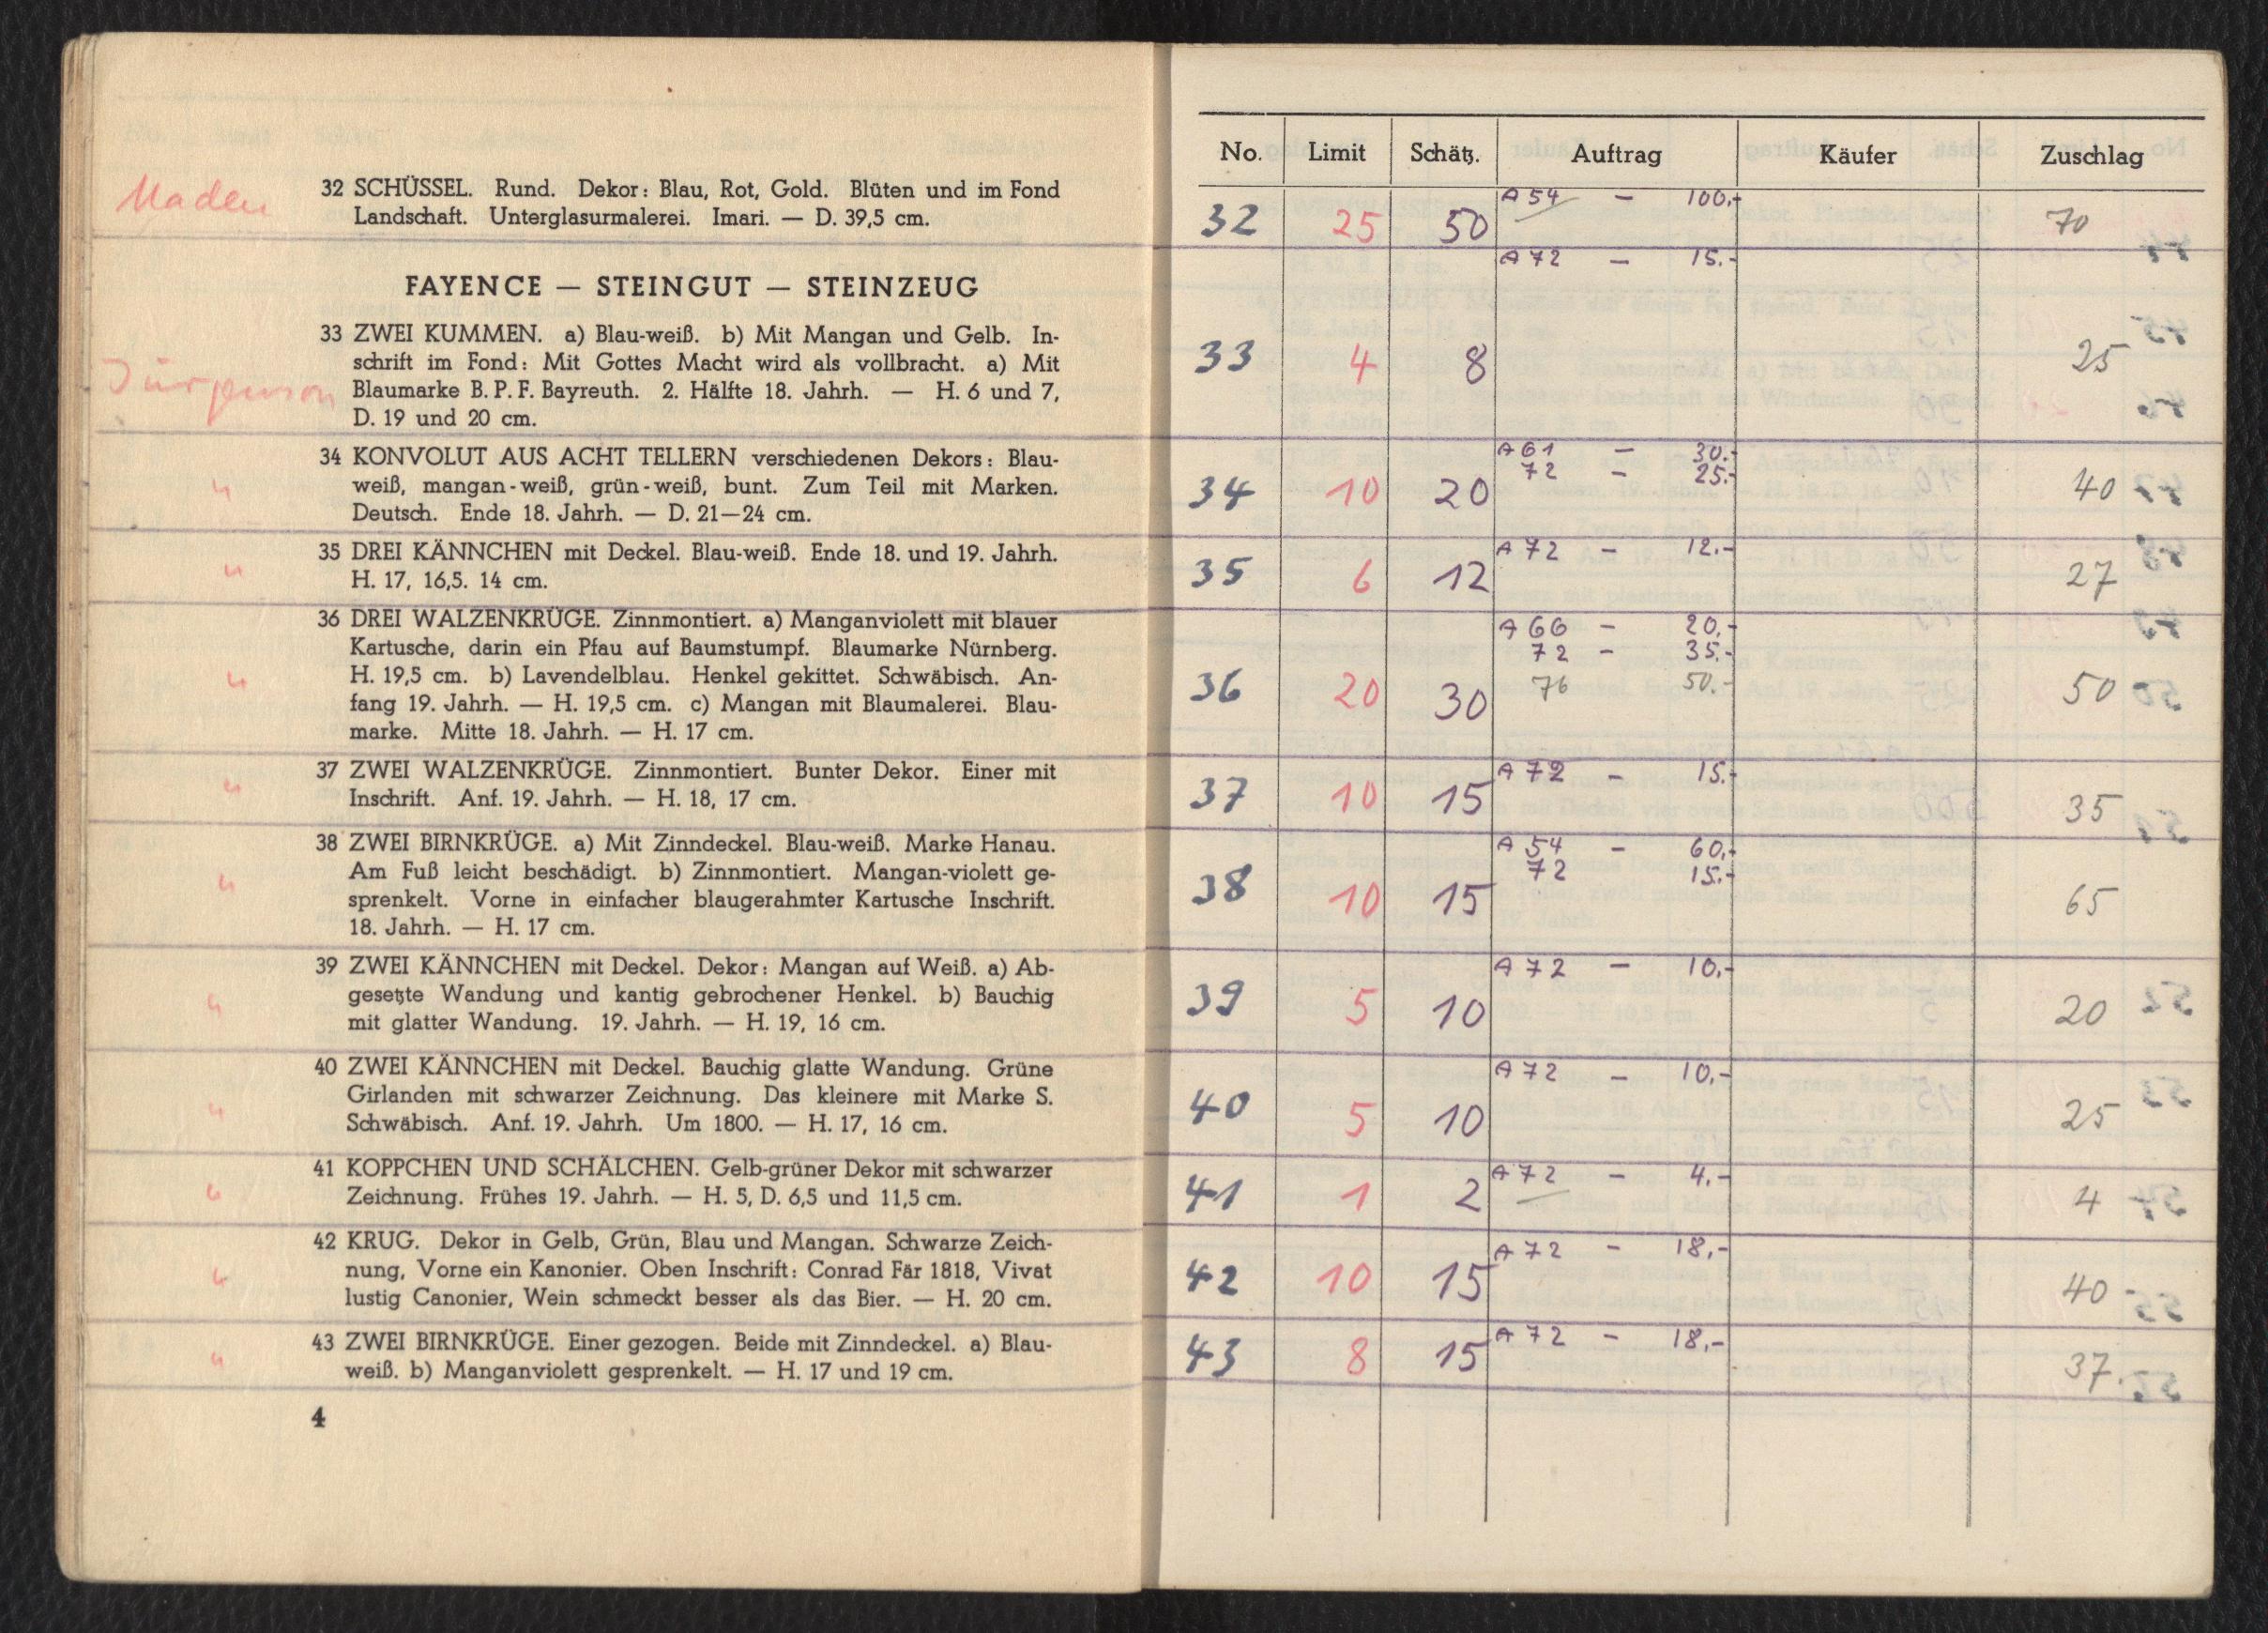 Maden
32 SCHÜSSEL. Rund. Dekor: Blau, Rot, Gold. Blüten und im Fond
Landschaft. Unterglasurmalerei. Imari. — D. 39,5 cm.
FAYENCE — STEINGUT — STEINZEUG
33 ZWEI KUMMEN. a) Blau-weiß. b) Mit Mangan und Gelb. In-
schrift im Fond: Mit Gottes Macht wird als vollbracht. a) Mit
Blaumarke B. P. F. Bayreuth. 2. Hälfte 18. Jahrh. — H. 6 und 7,
D. 19 und 20 cm.
34 KONVOLUT AUS ACHT TELLERN verschiedenen Dekors: Blau-
weiß, mangan-weiß, grün-weiß, bunt. Zum Teil mit Marken.
Deutsch. Ende 18. Jahrh. — D. 21—24 cm.
35 DREI KÄNNCHEN mit Deckel. Blau-weiß. Ende 18. und 19. Jahrh.
H. 17, 16,5. 14 cm.
36 DREI WALZENKRÜGE. Zinnmontiert. a) Manganviolett mit blauer
Kartusche, darin ein Pfau auf Baumstumpf. Blaumarke Nürnberg.
H. 19,5 cm. b) Lavendelblau. Henkel gekittet. Schwäbisch. An-
fang 19. Jahrh. — H. 19,5 cm. c) Mangan mit Blaumalerei. Blau-
marke. Mitte 18. Jahrh. — H. 17 cm.
37 ZWEI WALZENKRÜGE. Zinnmontiert. Bunter Dekor. Einer mit
Inschrift. Anf. 19. Jahrh. — H. 18, 17 cm.
38 ZWEI BIRNKRÜGE. a) Mit Zinndeckel. Blau-weiß. Marke Hanau.
Am Fuß leicht beschädigt. b) Zinnmontiert. Mangan-violett ge-
sprenkelt. Vorne in einfacher blaugerahmter Kartusche Inschrift.
18. Jahrh. — H. 17 cm.
39 ZWEI KÄNNCHEN mit Deckel. Dekor: Mangan auf Weiß. a) Ab-
gesetzte Wandung und kantig gebrochener Henkel. b) Bauchig
mit glatter Wandung. 19. Jahrh. — H. 19, 16 cm.
40 ZWEI KÄNNCHEN mit Deckel. Bauchig glatte Wandung. Grüne
Girlanden mit schwarzer Zeichnung. Das kleinere mit Marke S.
Schwäbisch. Anf. 19. Jahrh. Um 1800. — H. 17, 16 cm.
41 KOPPCHEN UND SCHÄLCHEN. Gelb-grüner Dekor mit schwarzer
Zeichnung. Frühes 19. Jahrh. — H. 5, D. 6,5 und 11,5 cm.
42 KRUG. Dekor in Gelb, Grün, Blau und Mangan. Schwarze Zeich-
nung, Vorne ein Kanonier. Oben Inschrift: Conrad Fär 1818, Vivat
lustig Canonier, Wein schmeckt besser als das Bier. — H. 20 cm.
43 ZWEI BIRNKRÜGE. Einer gezogen. Beide mit Zinndeckel. a) Blau-
weiß. b) Manganviolett gesprenkelt. — H. 17 und 19 cm.
4
No. Limit Schätz. Auftrag Käufer Zuschlag
A 54 — 100.-
32 25 50 70
A 72 — 15.-
33 4 8 25
A 61 — 30.-
72 — 25.-
34 10 20 40
A 72 — 12.-
35 6 12 27
A 66 — 20.-
72 — 35.-
76 50.-
36 20 30 50
A 72 — 15.-
37 10 15 35
A 54 — 60.-
72 15.-
38 10 15 65
A 72 — 10.-
39 5 10 20
A 72 — 10.-
40 5 10 25
A 72 — 4.-
41 1 2 4
A 72 — 18.-
42 10 15 40
A 72 — 18.-
43 8 15 37.